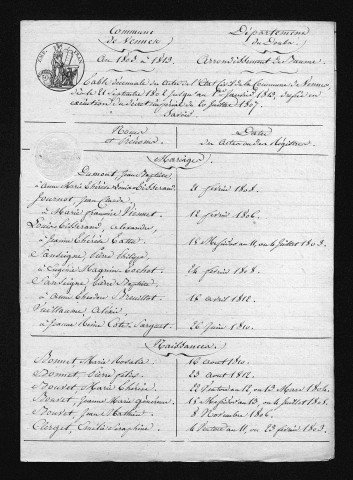 Commune
de Vennes
Département
du Doubs
An 1803 à 1813
Arrondissement de Baume
Table décennale des actes de l'Etat Civil de la Commune de Vennes,
depuis le 21 Septembre 1802 jusqu'au 1er Janvier 1813, dressée en
exécution du Décret impérial du 20 Juillet 1807.
Savoir
Noms
et Prénoms
Dates
des Actes ou des Registres
Mariages
Dumont Jean Baptiste
à Anne Marie Thérèse Louis-Bisserand 21 février 1808.
Journot Jean Claude,
à Marie françoise 12 février 1806.
Louis-Bisserand, Alexandre,
à Jeanne Thérèse 15 Messidor an 11, ou 4 Juillet 1803.
Sandeigne Pierre Philippe
à Eugénie Magnin 24 février 1808.
Sandeigne Pierre Baptiste
à Anne Claudine 15 avril 1812.
Vuillaume
à Jeanne 26 Juin 1810.
Naissances
Bonnet Marie Rosalie 16 août 1810.
Bonnet, Pierre félix 23 août 1812.
Bouvet, Marie Thérèse 22 Ventose an 12, ou 13 Mars 1804.
Bouvet, Jeanne Marie Généreuse 15 Messidor an 13, ou 4 Juillet 1805.
Bouvet, Jean Mathieu 8 Novembre 1806.
Clerget, Emilie Séraphine 4 Ventose an 11, ou 23 février 1803.